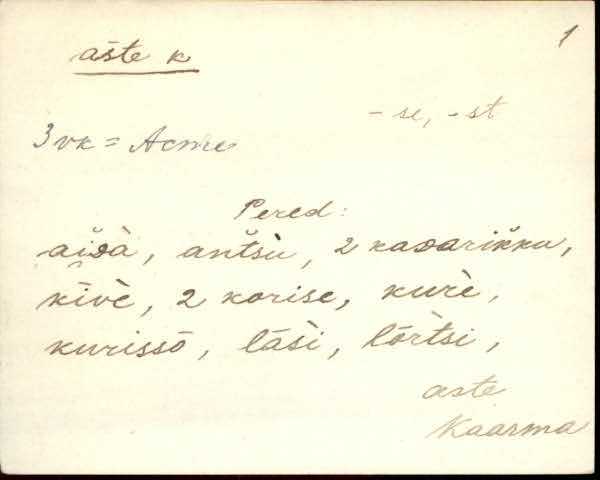 1
aste k
- se, - st
3 vk = Acme
Pered:
aiᴅà, antsù, 2 kaᴅarikku,
kivè, 2 korise, kurè,
kurissõ, lasi, lõrtsi,
aste
Kaarma